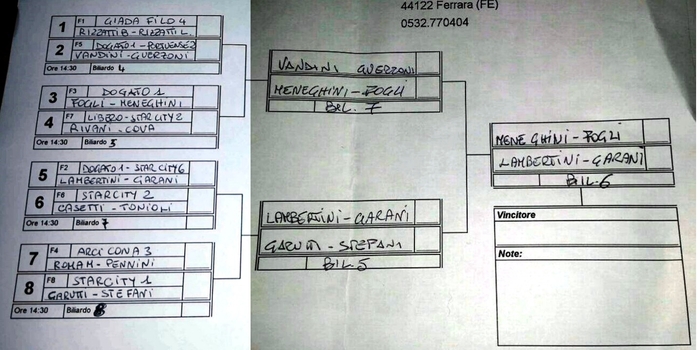 44122 Ferrara (FE)
0532.770404
1 F1 GIADA FILO 4
RIZZATTI B - RIZZATTI L.
2 F5 DOGATO 1 - PORTUENSE 2
VANDINI - GUERZONI
Ore 14:30 Biliardo 4
3 F3 DOGATO 1
FOGLI - MENEGHINI
4 F7 LIBERO - STAR CITY 2
RIVANI - COVA
Ore 14:30 Biliardo 5
5 F2 DOGATO 1 - STAR CITY 6
LAMBERTINI - GARANI
6 F6 STARCITY 2
CASETTI - TONIOLI
Ore 14:30 Biliardo 7
7 F4 ARCI CONA 3
ROMAN - PENNINI
8 F8 STARCITY 1
GARUTTI - STEFANI
Ore 14:30 Biliardo 8
VANDINI GUERZONI
MENEGHINI - FOGLI
BIL. 7
LAMBERTINI - GARANI
GARUTTI - STEFANI
BIL. 5
MENEGHINI - FOGLI
LAMBERTINI - GARANI
BIL. 6
Vincitore
Note: